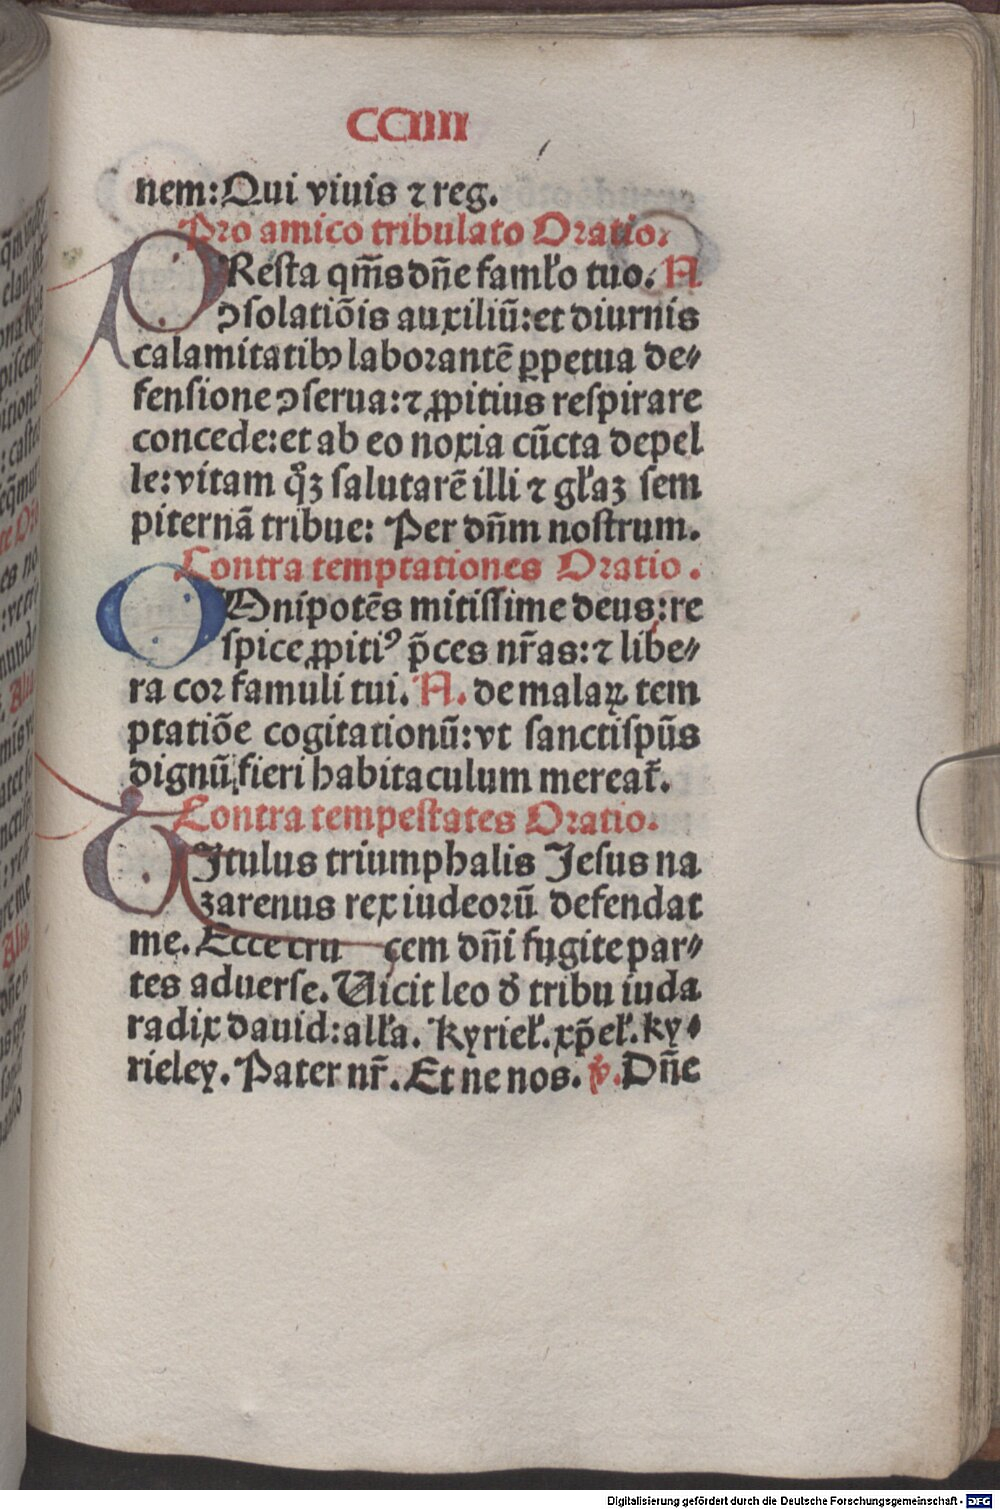 CCIIII
nem: Qui viuis ⁊ reg.
Pro amico tribulato Oratio.
PResta qm̄s dn̄e famł’o tuo. N
ↄsolatiōis auxiliū: et diurnis
calamitatibꝰ laborantē ꝑpetua de⸗
fensione ↄserua: ⁊ ꝓpitius respirare
concede: et ab eo noxia cūcta depel
le: vitam qꝫ salutarē illi ⁊ gl’aꝫ sem
piternā tribue: Per dn̄m nostrum.
Contra temptationes Oratio.
OMnipotēs mitissime deus: re
spice ꝓpitiꝰ p̄ces nr̄as: ⁊ libe⸗
ra cor famuli tui. N. de malaꝝ tem
ptatiōe cogitationū: vt sanctispūs
dignū fieri habitaculum mereat̄.
Contra tempestates Oratio.
TItulus triumphalis Jesus na
zarenus rex iudeorū defendat
me. Ecce cru cem dn̄i fugite par⸗
tes aduerse. Vicit leo d’ tribu iuda
radix dauid: all’a. Kyriel’. xp̄el’. ky⸗
rieley. Pater nr̄. Et ne nos. ℣. Dn̄e
Digitalisierung gefördert durch die Deutsche Forschungsgemeinschaft - DFG